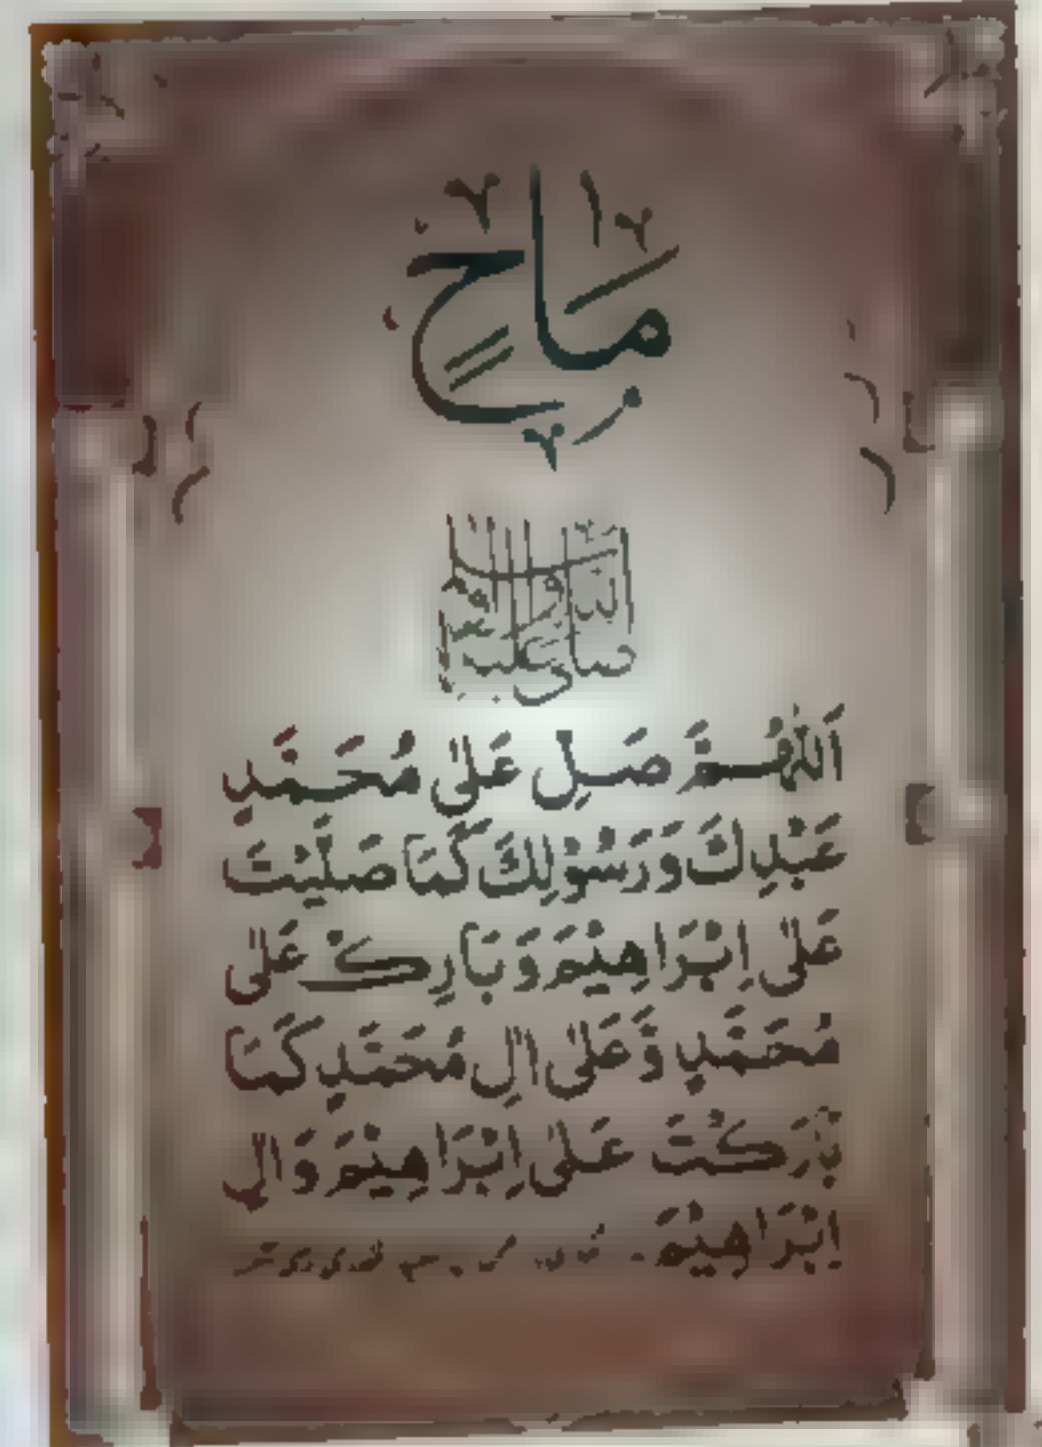 مَاحٍ
صلى الله عليه وآله وسلم
اَللّٰهُمَّ صَلِ عَلىٰ مُحَمَّدٍ
عَبْدِكَ وَرَسُوْلِكَ كَمَا صَلَّيْتَ
عَلىٰ اِبْرَاهِيْمَ وَبَارِكْ عَلىٰ
مُحَمَّدٍ وَّعَلىٰ اٰلِ مُحَمَّدٍ كَمَا
بَارَكْتَ عَلىٰ اِبْرَاهِيْمَ وَاٰلِ
اِبْرَاهِيْمَ